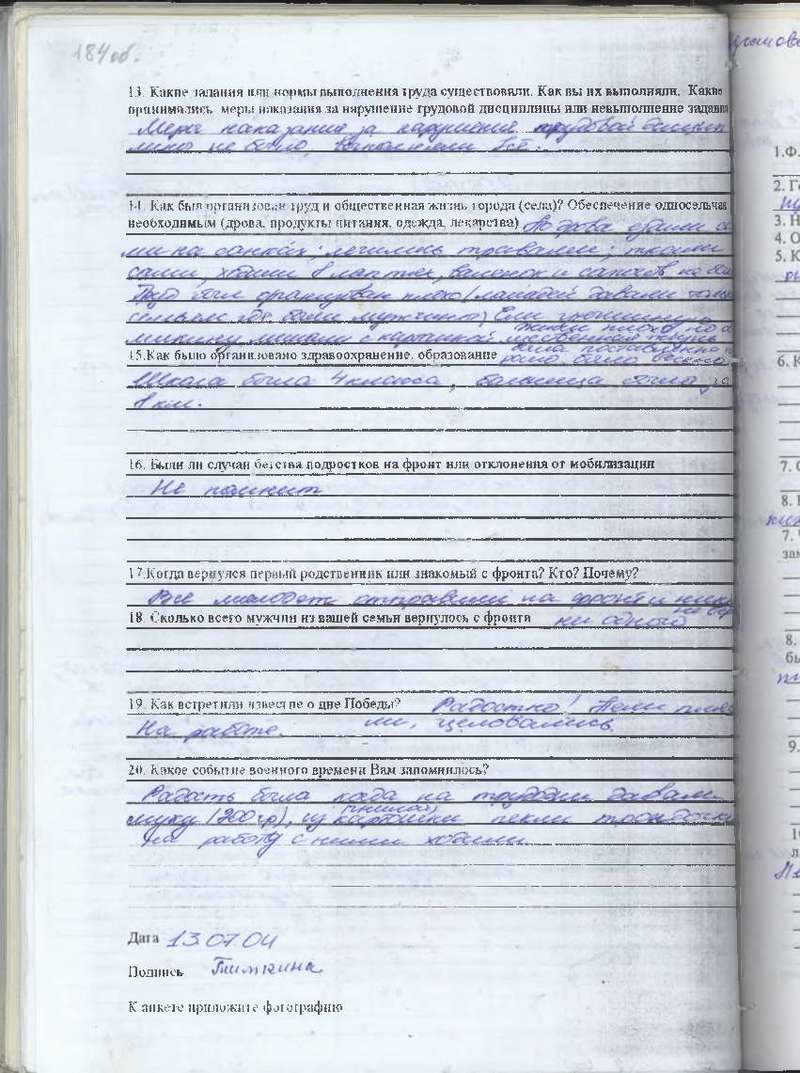 184об.
13. Какие задания или нормы выполнения труда существовали. Как вы их выполняли. Какие
принимались меры наказания за нарушение трудовой дисциплины или невыполнение задания
Меры наказания за нарушения трудовой дисцип
лины не было, выполняли всё.
14. Как был организован труд и общественная жизнь города (села)? Обеспечение односельчан
необходимым (дрова, продукты питания, одежда, лекарства) По дрова ездили са
ми на санках; лечились травами; ткали
сами, ходили в лаптях, валенок и сапогов не бы
Труд был организован плохо (лошадей давали только
семьям где были мужчины) Ели
с картошкой
15.Как было организовано здравоохранение, образование
Школа была 4 класса, больница была за
8 км.
16. Были ли случаи бегства подростков на фронт или отклонения от мобилизации
Не помнит
17.Когда вернулся первый родственник или знакомый с фронта? Кто? Почему?
Всю молодежь отправили на фронт и ник
не вер
18. Сколько всего мужчин из вашей семьи вернулось с фронта ни одного
19. Как встретили известие о дне Победы? Радостно! Пели пляса
На работе. ли, целовались.
20. Какое событие военного времени Вам запомнилось?
Радость была када на трудодни давали
муку (200 гр), из гнилой картошки пекли
на работу с ними ходили.
Дата 13.07.04
Подпись Тимкина
К анкете приложите фотографию
1.Ф.
2. Г
3. Н
4. О
5. К
6. К
7. С
8.
7.
9.